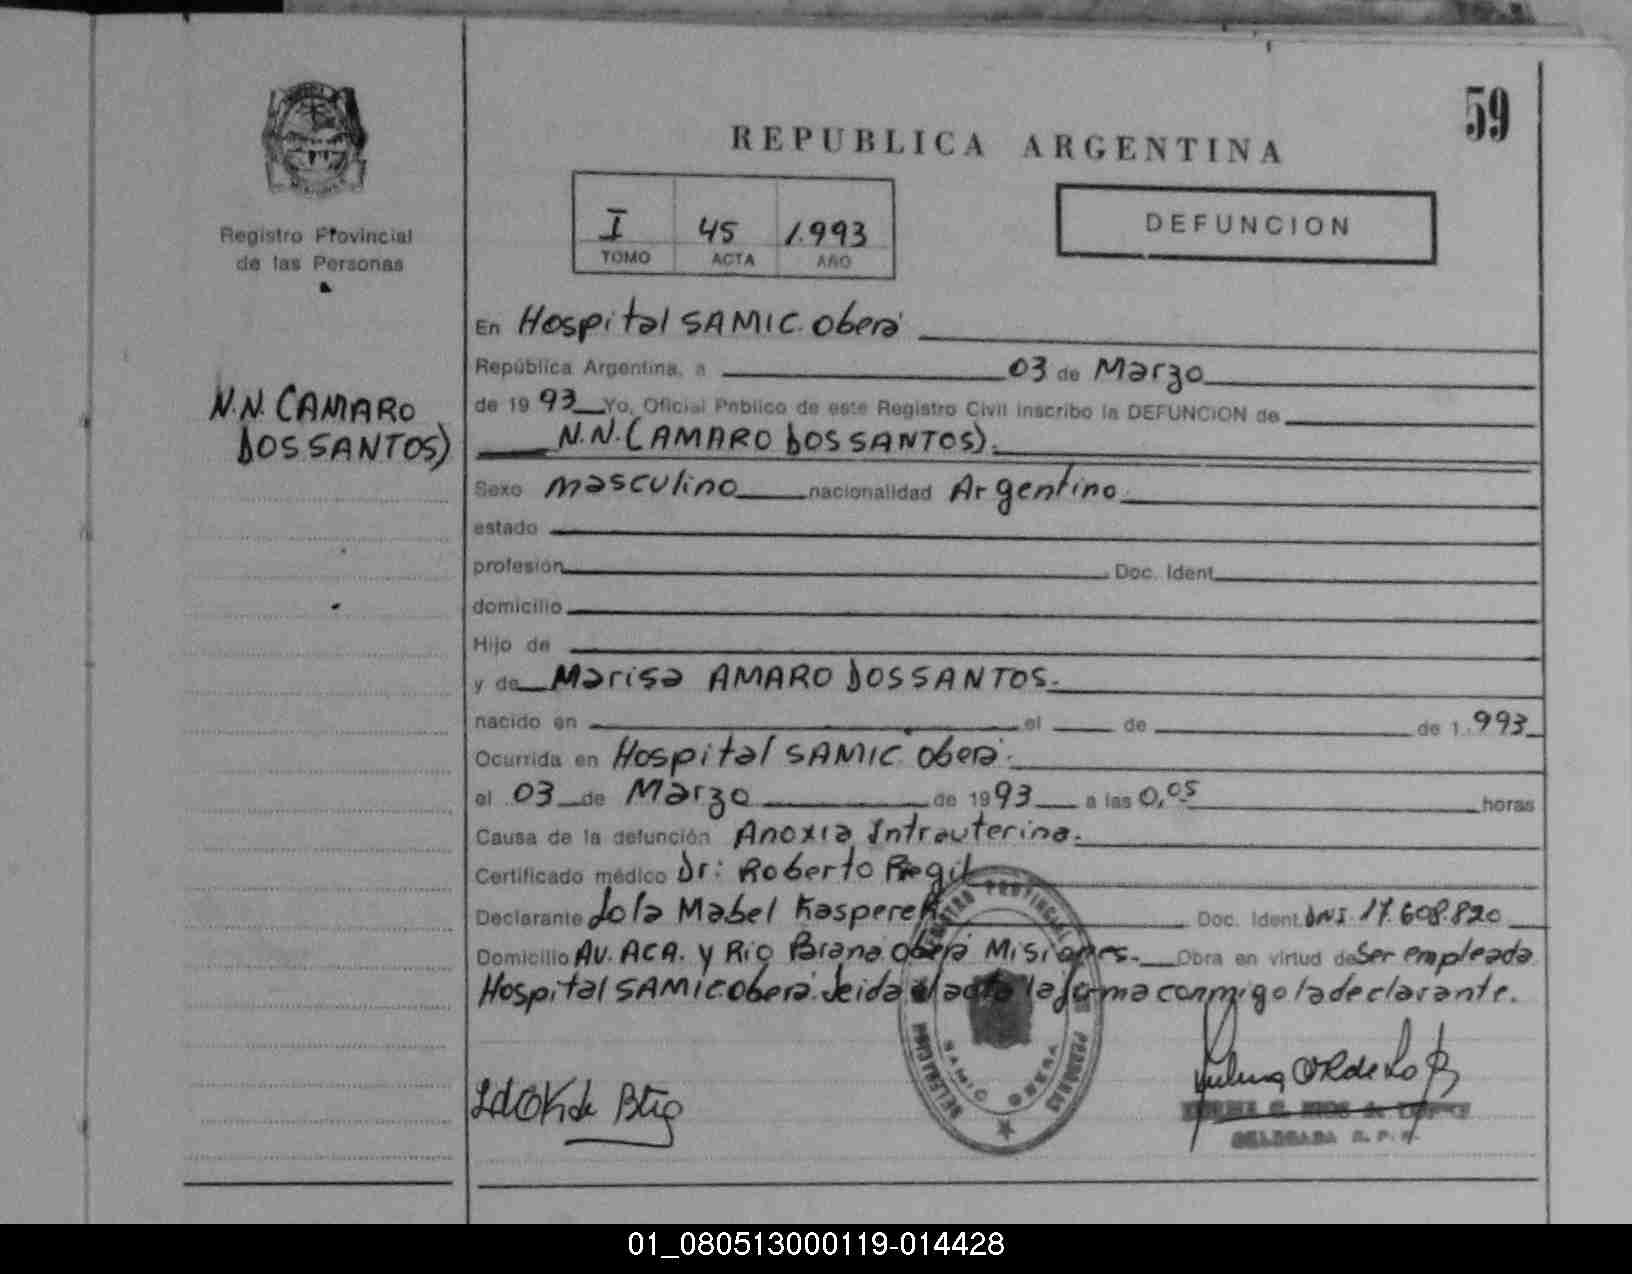 59
REPUBLICA ARGENTINA
I 45 1.993
TOMO ACTA AÑO
DEFUNCION
Registro Provincial
de las Personas
N.N. (AMARO
DOS SANTOS)
En Hospital SAMIC. Oberá
República Argentina, a 03 de Marzo
de 1993 Yo, Oficial Público de este Registro Civil inscribo la DEFUNCION de
N.N. (AMARO DOS SANTOS).
Sexo masculino nacionalidad Argentino
estado
profesión Doc. Ident.
domicilio
Hijo de
y de Marisa AMARO DOS SANTOS.
nacido en el de de 1.993
Ocurrida en Hospital SAMIC. Oberá.
el 03 de Marzo de 1993 a las 0,05 horas
Causa de la defunción Anoxia Intrauterina.
Certificado médico Dr: Roberto
Declarante Lola Mabel Kasperek Doc. Ident. DNI. 17.608.820
Domicilio AV. ACA. y Rio Oberá Misiones. Obra en virtud de Ser empleada
Hospital SAMIC Oberá. Leida el acta la firma conmigo la declarante.
REGISTRO PROVINCIAL DE PERSONAS
DELEGACION
SAMIC OBERA
DELEGADA R. P. P.
01_080513000119-014428